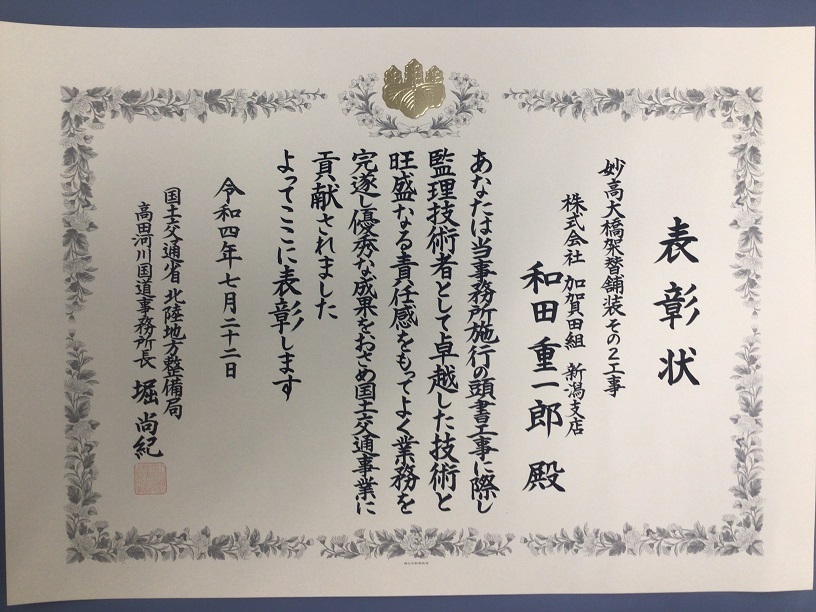 表彰状
妙高大橋架替舗装その2工事
株式会社 加賀田組 新潟支店
和田重一郎 殿
あなたは当事務所施行の頭書工事に際し
監理技術者として卓越した技術と
旺盛なる責任感をもってよく業務を
完遂し優秀な成果をおさめ国土交通事業に
貢献されました
よってここに表彰します
令和四年七月二十二日
国土交通省 北陸地方整備局
高田河川国道事務所長 堀 尚紀